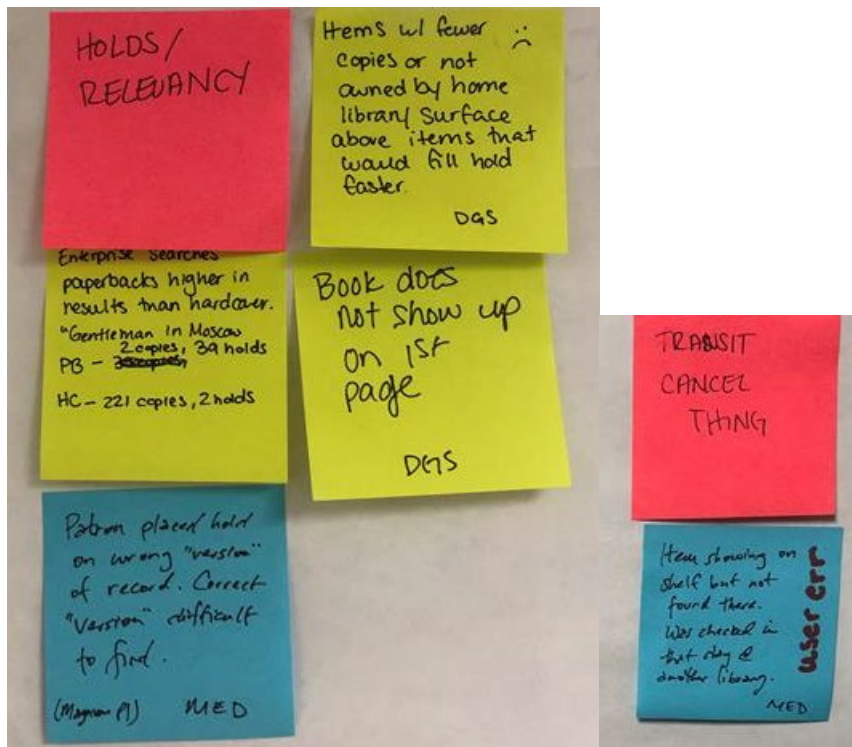 HOLDS/
RELEVANCY
Items w/ fewer :(
copies or not
owned by home
library surface
above items that
would fill hold
faster.
DGS
Enterprise searches
paperbacks higher in
results than hardcover.
"Gentleman in Moscow
2 copies, 39 holds
PB –
HC – 221 copies, 2 holds
Book does
not show up
on 1st
page
DGS
Patron placed hold
on wrong "version"
of record. Correct
"version" difficult
to find.
(Magnum PI) MED
TRANSIT
CANCEL
THING
Item showing on
shelf but not
found there.
Was checked in
that day @
another library.
MED
user err